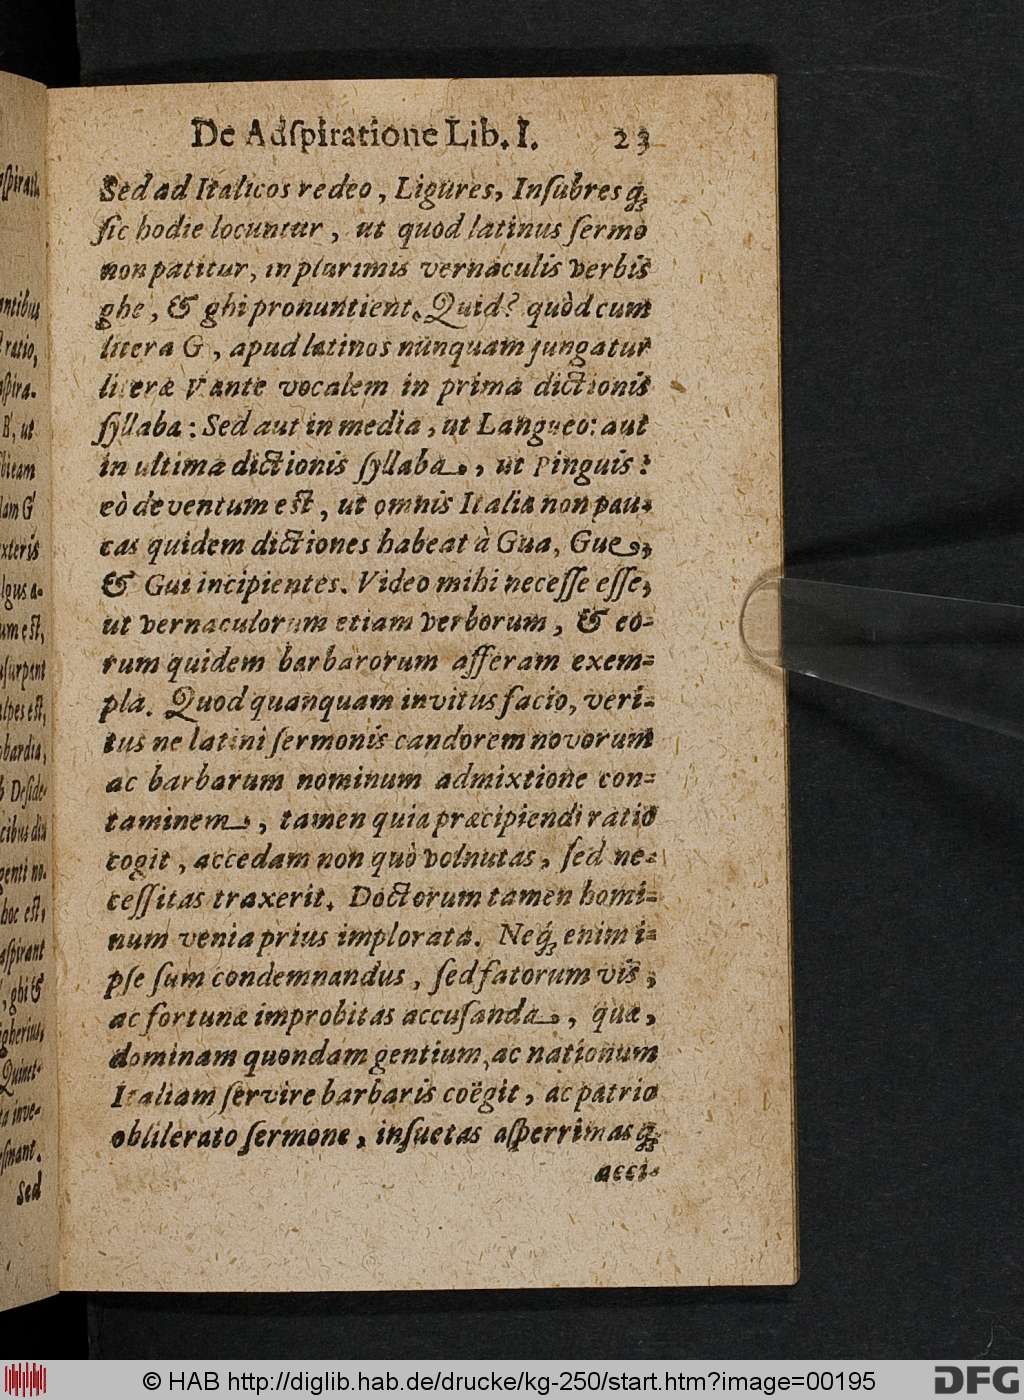 De Adſpiratione Lib. I. 23
Sed ad Italicos redeo, Ligures, Inſubres q́ꝫ
ſic hodie locuntur, ut quod latinus ſermo
non patitur, in plurimis vernaculis verbis
ghe, & ghi pronuntient. Quid? quòd cum
litera G, apud latinos nūnquam jungatur
literæ V ante vocalem in prima dictionis
ſyllaba: Sed aut in media, ut Langueo: aut
in ultima dictionis ſyllaba, ut Pinguis:
eò deventum eſt, ut omnis Italia non pau-
cas quidem dictiones habeat à Gua, Gue,
& Gui incipientes. Video mihi neceſſe eſſe,
ut vernaculorum etiam verborum, & eo-
rum quidem barbarorum afferam exem-
pla. Quod quanquam invitus facio, veri-
tus ne latini ſermonis candorem novorum
ac barbarum nominum admixtione con-
taminem, tamen quia præcipiendi ratio
cogit, accedam non quò volnutas, ſed ne-
ceſſitas traxerit. Doctorum tamen homi-
num venia prius implorata. Neq́ꝫ enim i-
pſe ſum condemnandus, ſed fatorum vis,
ac fortunæ improbitas accuſanda, quæ,
dominam quondam gentium, ac nationum
Italiam ſervire barbaris coëgit, ac patrio
oblilerato ſermone, inſuetas aſperrimas q́ꝫ
acci-
antibus
ratio,
ut
G
exteris
eſt,
Quinct-
Sed
© HAB http://diglib.hab.de/drucke/kg-250/start.htm?image=00195
DFG